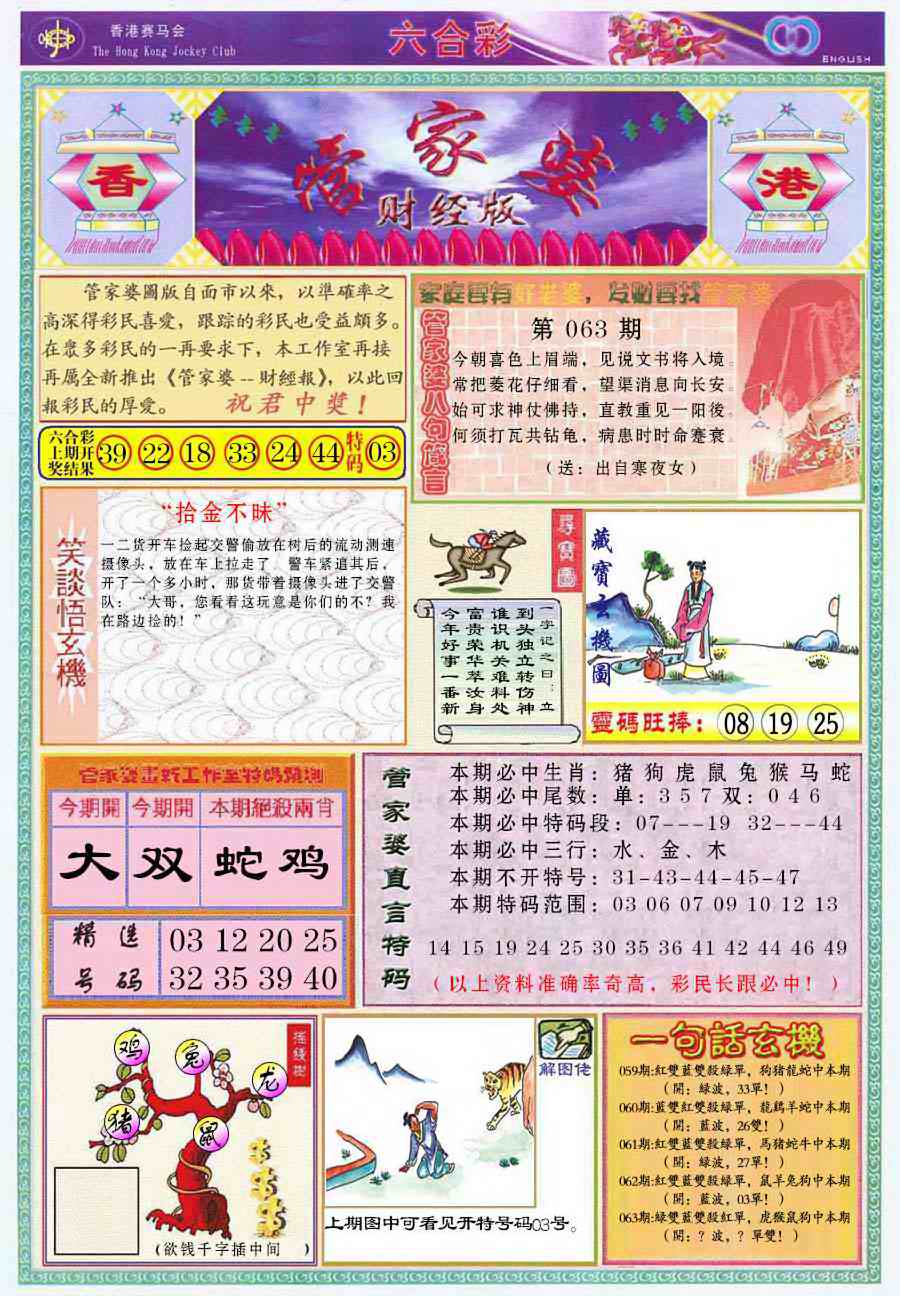 香港赛马会
The Hong Kong Jockey Club
六合彩
ENGLISH
香
管家婆
财经版
港
管家婆圖版自面市以來，以準確率之
高深得彩民喜愛，跟踪的彩民也受益頗多。
在眾多彩民的一再要求下，本工作室再接
再属全新推出《管家婆--財經報》，以此回
報彩民的厚愛。 祝君中獎！
六合彩
上期开
奖结果
39 22 18 33 24 44 特码 03
家庭要有好老婆，发财要找管家婆
管家婆八句箴言
第 063 期
今朝喜色上眉端，见说文书将入境。
常把菱花仔细看，望渠消息向长安。
始可求神仗佛持，直教重见一阳後。
何须打瓦共钻龟，病患时时命蹇衰。
（送：出自寒夜女）
笑談悟玄機
“拾金不昧”
一二货开车捡起交警偷放在树后的流动测速
摄像头，放在车上拉走了，警车紧追其后，
开了一个多小时，那货带着摄像头进了交警
队：“大哥，您看看这玩意是你们的不？我
在路边捡的！”
尋寶圖
一字记之曰：立
到头独立转伤神
谁识机关难料处
富贵荣华萃汝身
今年好事一番新
藏寶玄機圖
靈碼旺捧： 08 19 25
管家婆最新工作室特碼預測
今期開 今期開 本期絕殺兩肖
大 双 蛇鸡
精选
号码
03 12 20 25
32 35 39 40
管家婆直言特码
本期必中生肖：猪狗虎鼠兔猴马蛇
本期必中尾数：单：3 5 7 双：0 4 6
本期必中特码段：07---19 32---44
本期必中三行：水、金、木
本期不开特号：31-43-44-45-47
本期特码范围：03 06 07 09 10 12 13
14 15 19 24 25 30 35 36 41 42 44 46 49
（以上资料准确率奇高，彩民长跟必中！）
摇錢樹
鸡
兔
龙
猪
鼠
（欲钱千字插中间 ）
解图佬
上期图中可看见开特号码03号。
一句話玄機
059期:紅雙藍雙殺綠單，狗猪龍蛇中本期
（開：綠波，33單！）
060期:藍雙紅雙殺綠單，龍鷄羊蛇中本期
（開：藍波，26雙！）
061期:紅雙藍雙殺綠單，馬猪蛇牛中本期
（開：綠波，27單！）
062期:紅雙藍雙殺綠單，鼠羊兔狗中本期
（開：藍波，03單！）
063期:綠雙藍雙殺紅單，虎猴鼠狗中本期
（開：？波，？單雙！）